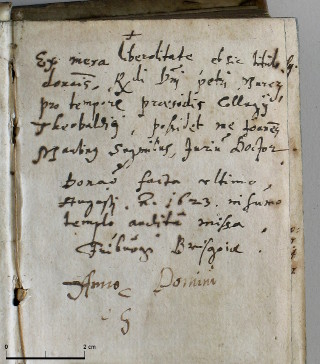 Ex mera liberalitate et sic titulo
donatiōis, Rdi Dñi petri
pro tempore præsidis Collegij
possidet me Joanēs
Martinus Juriū Doctor
Donatō facta ultimo
Augusti. A. 1623. in sumo
templo audita missa
Friburgi Brisgoiæ.
Anno Domini
0 2 cm